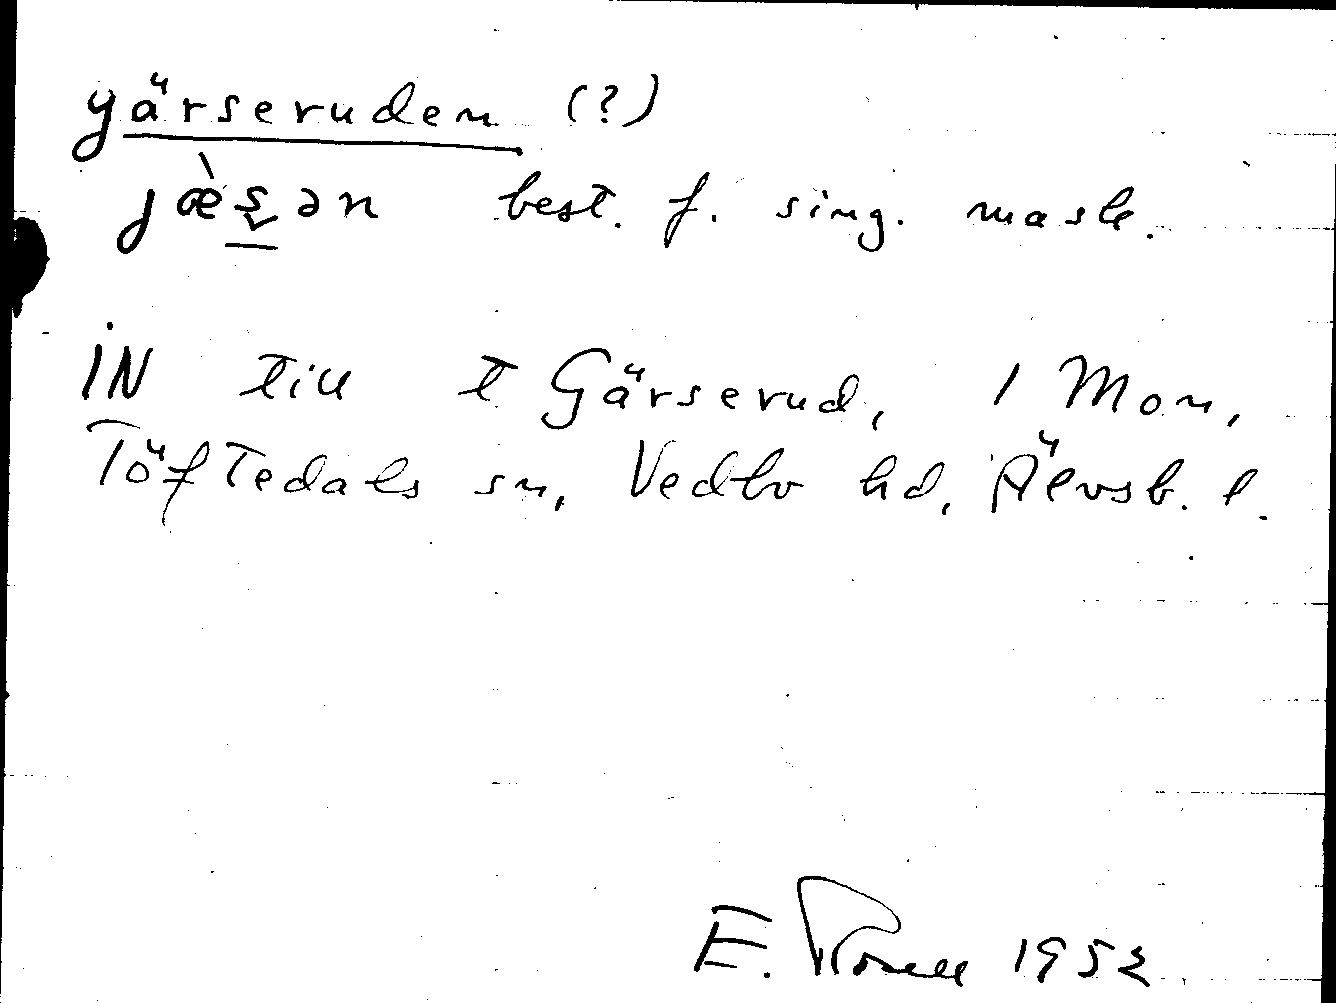 gärseruden (?)
jæ̀ʂən best. f. sing. mask.
IN till t Gärserud, 1 Mon,
Töftedals sn, Vedbo hd, Älvsb. l.
E. 1952